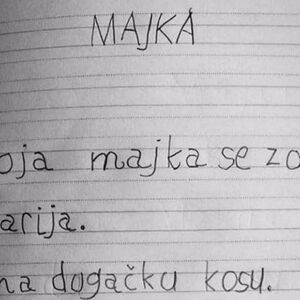 MAJKA
oja majka se zo
arija.
na dugačku kosu.